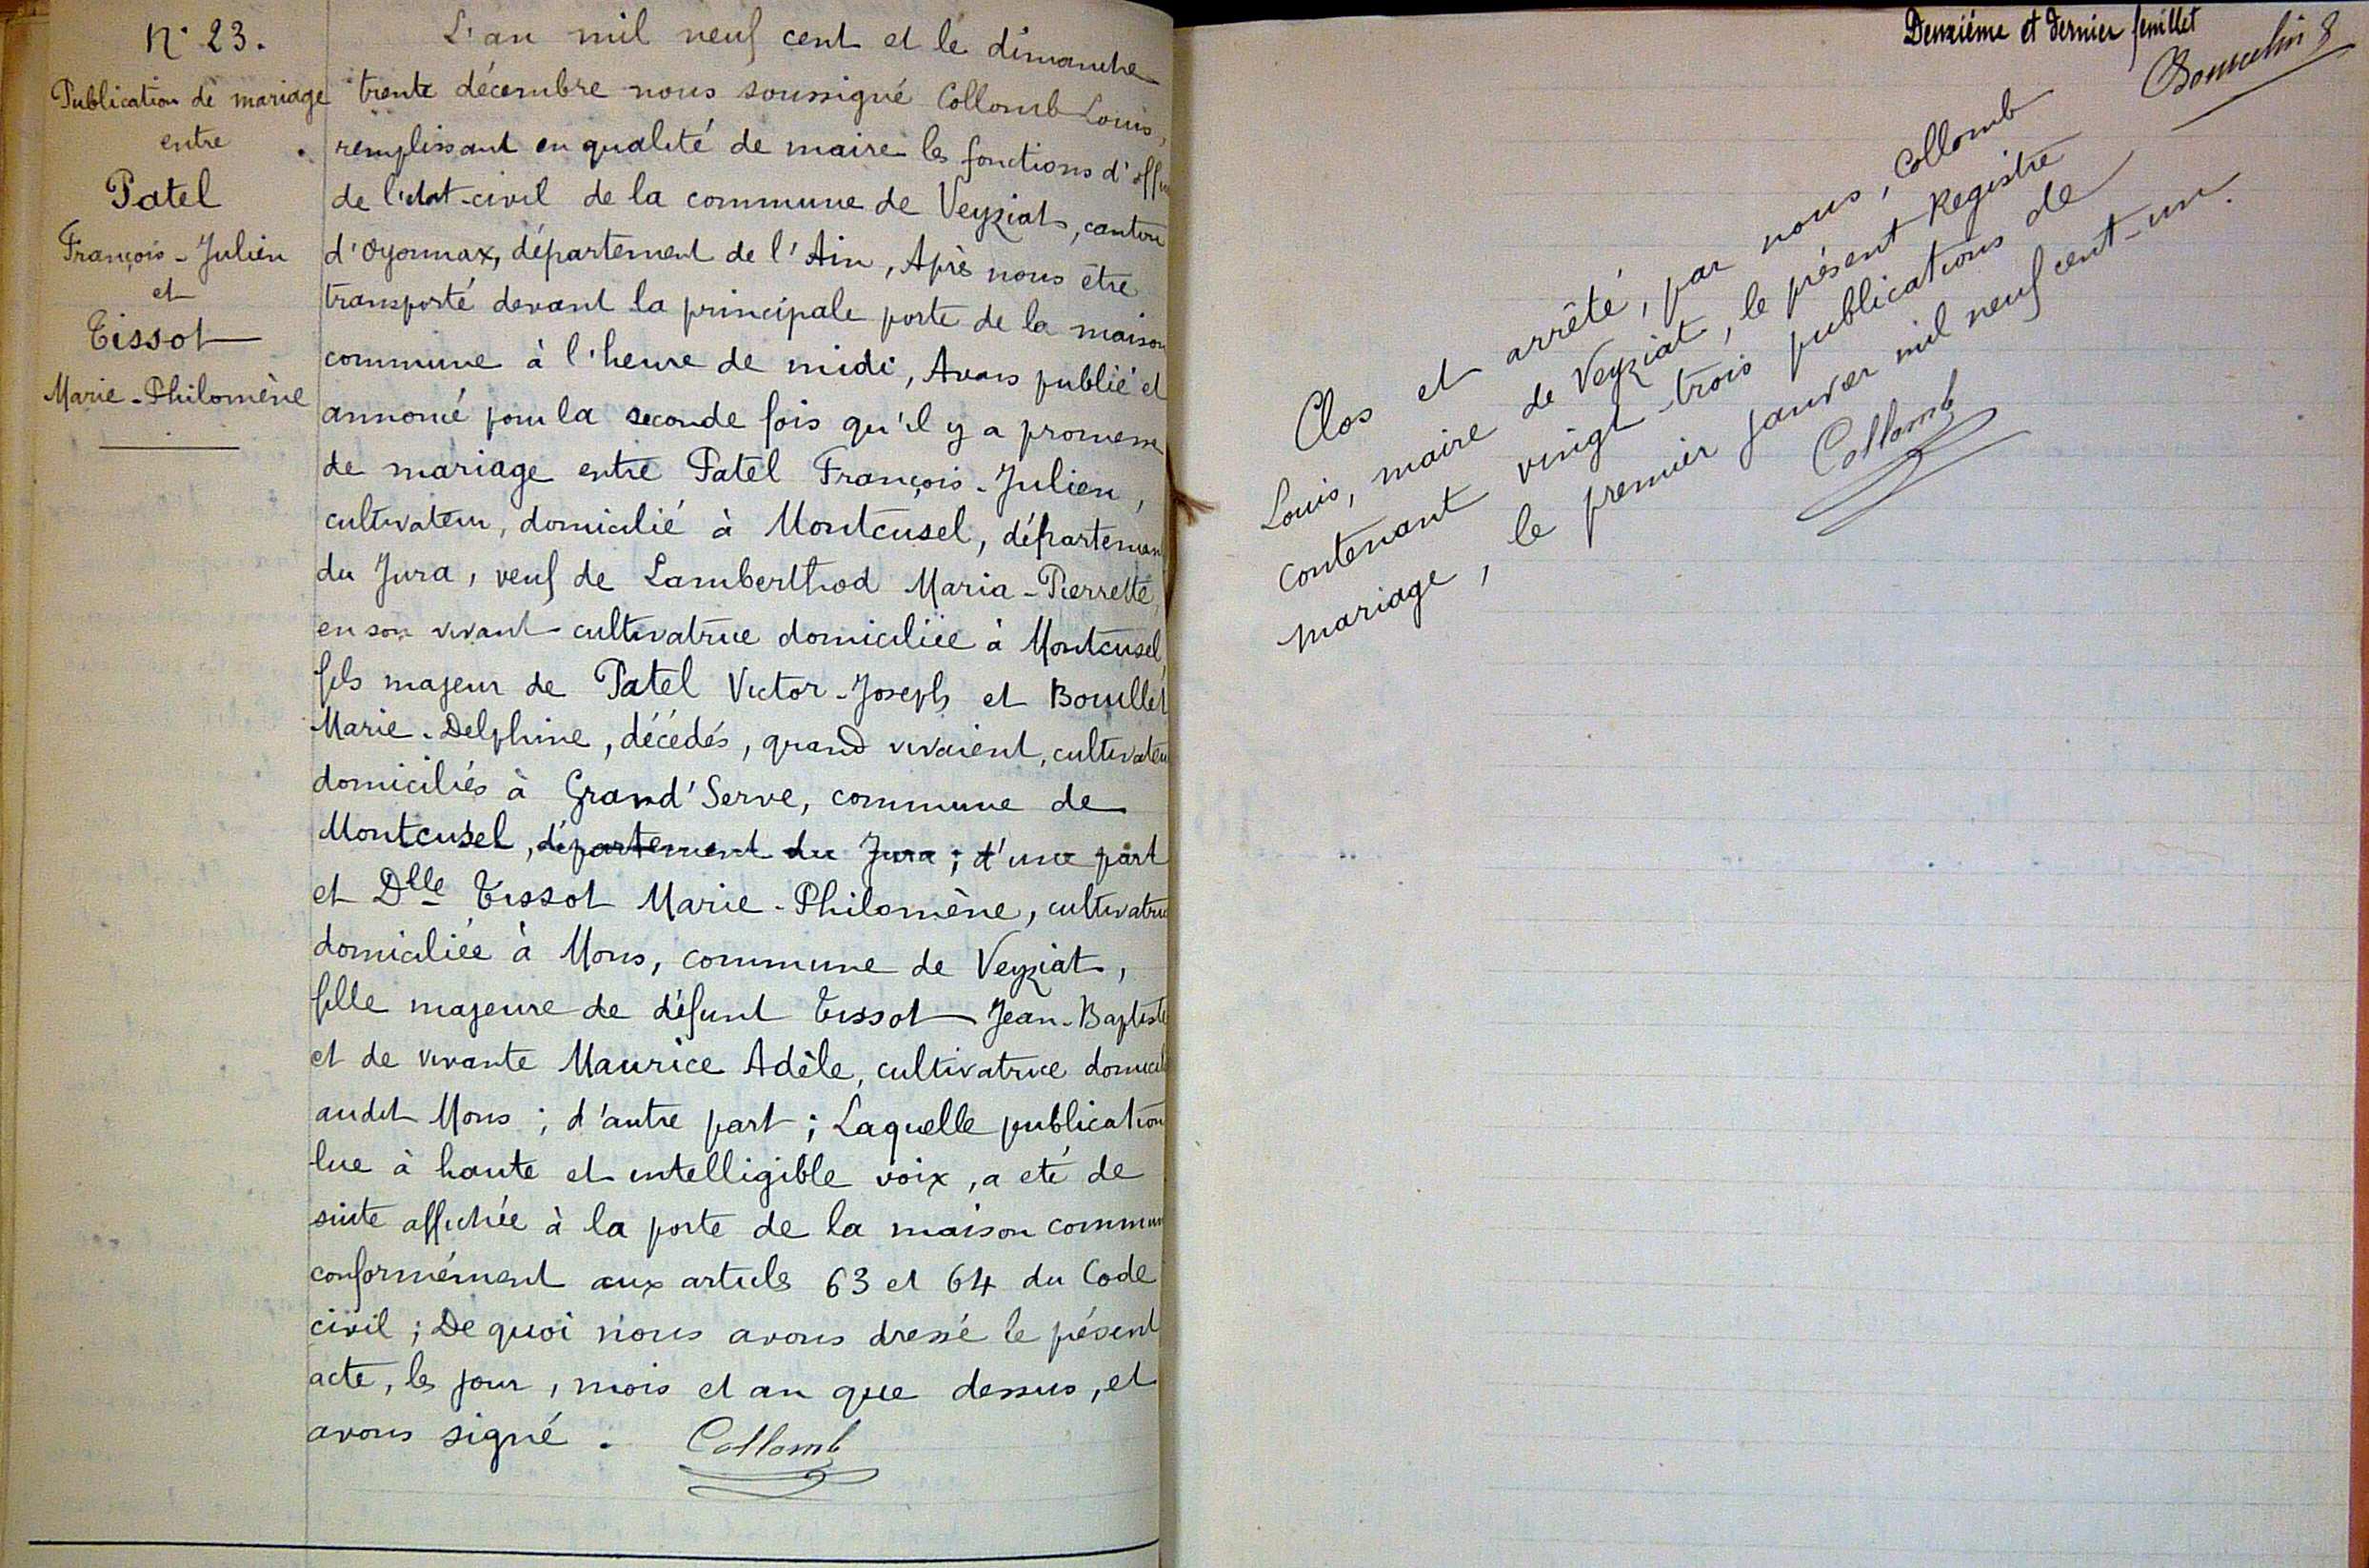 N° 23.
Publication de mariage
entre
Patel
François-Julien
et
Tissot
Marie-Philomène
L'an mil neuf cent et le dimanche
trente décembre nous soussigné Collomb Louis,
remplissant en qualité de maire les fonctions d'offi
de l'état-civil de la commune de Veyziat, canton
d'Oyonnax, département de l'Ain, Après nous être
transporté devant la principale porte de la maison
commune à l'heure de midi, Avons publié et
annoncé pour la seconde fois qu'il y a promesse
de mariage entre Patel François-Julien,
cultivateur, domicilié à Montcusel, département
du Jura, veuf de Lamberthod Maria-Pierrette,
en son vivant cultivatrice domiciliée à Montcusel,
fils majeur de Patel Victor-Joseph et Bouillet
Marie-Delphine, décédés, quand vivaient, cultivateu
domiciliés à Grand'Serve, commune de
Montcusel, département du Jura ; d'une part
et Dlle Tissot Marie-Philomène, cultivatric
domiciliée à Mons, commune de Veyziat,
fille majeure de défunt Tissot Jean-Baptiste
et de vivante Maurice Adèle, cultivatrice domicil
audit Mons ; d'autre part ; Laquelle publication
lue à haute et intelligible voix, a été de
suite affichée à la porte de la maison commun
conformément aux articles 63 et 64 du Code
civil ; De quoi nous avons dressé le présent
acte, les jour, mois et an que dessus, et
avons signé . Collomb
Deuxième et dernier feuillet
Clos et arrêté, par nous, Collomb
Louis, maire de Veyziat, le présent Registre
contenant vingt-trois publications de
mariage, le premier janvier mil neuf cent-un.
Collomb